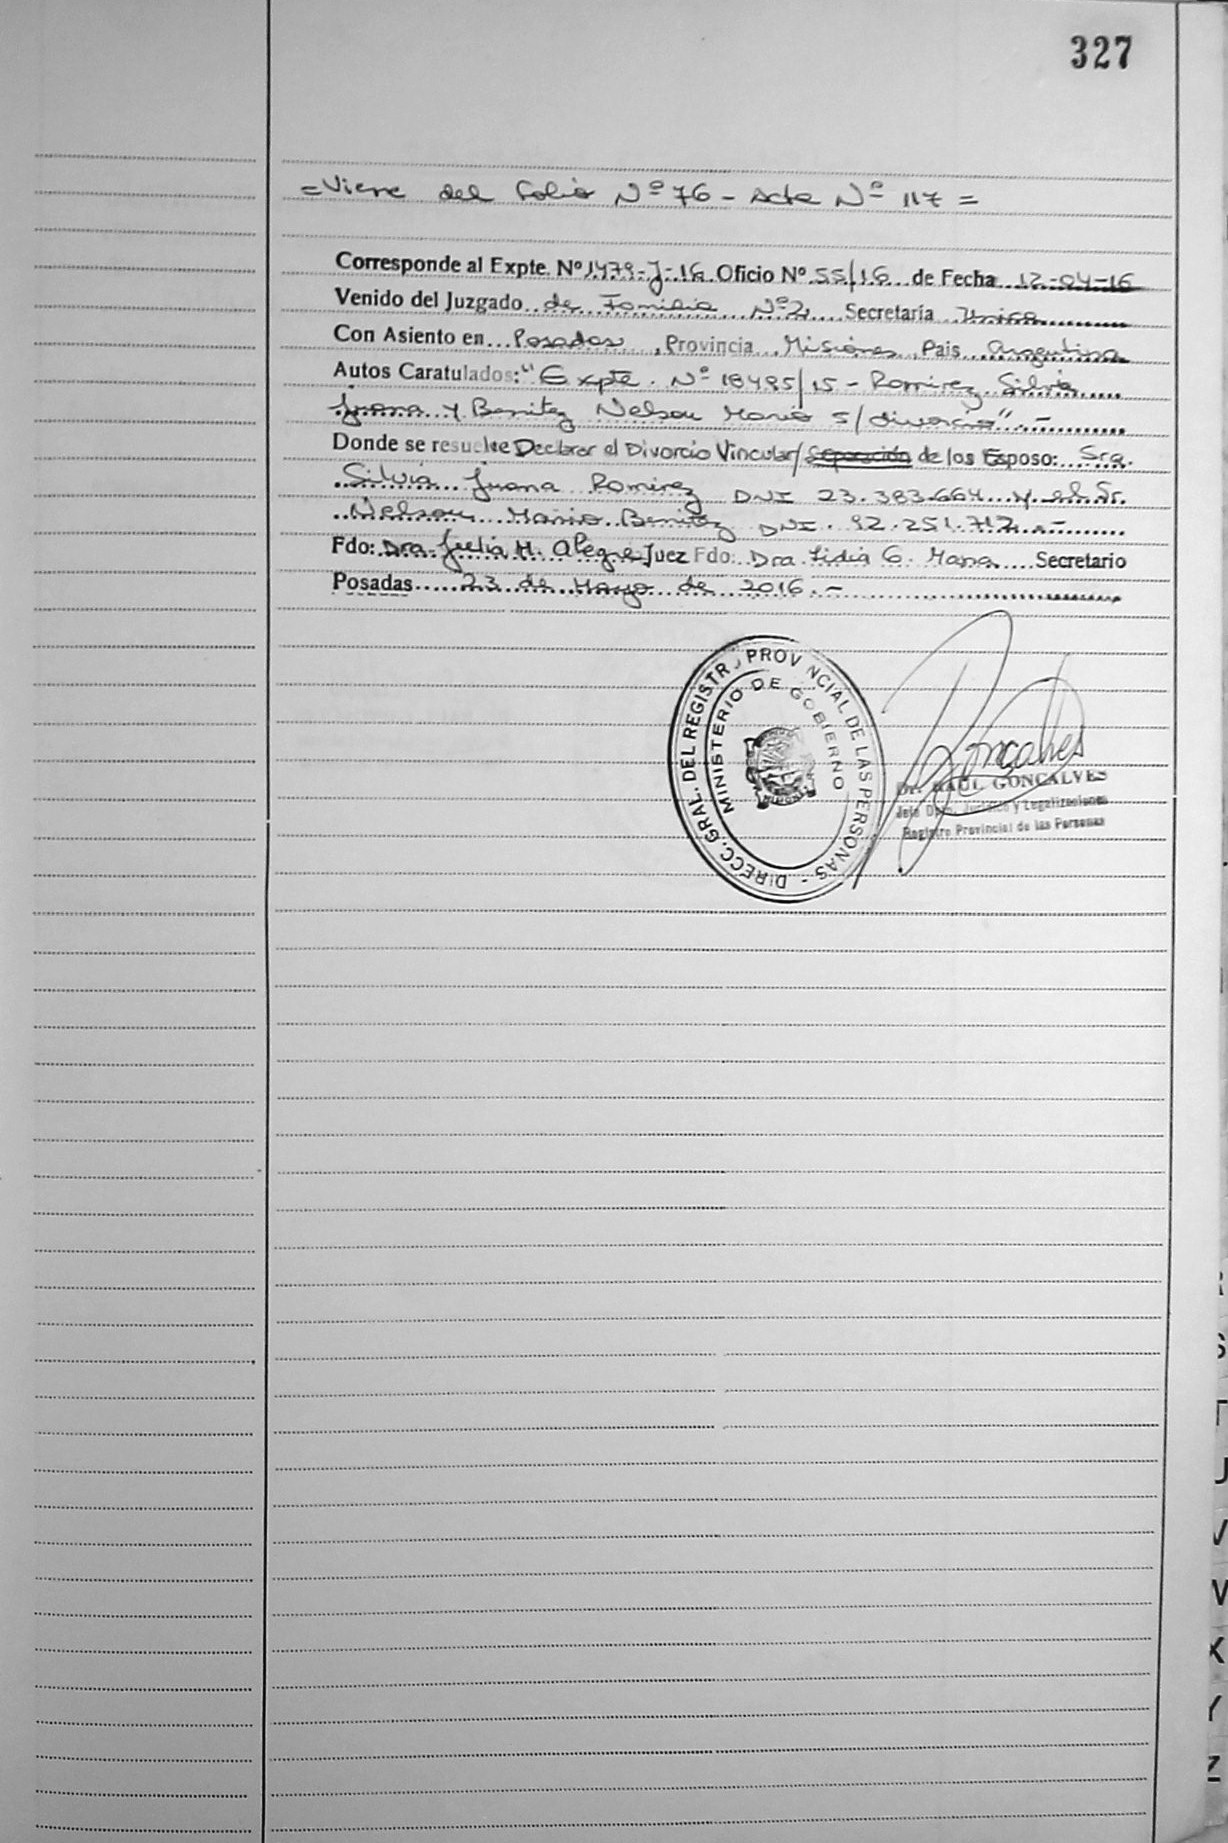 327
=Viene del folio Nº 76 - Acta Nº 117 =
Corresponde al Expte. Nº 1479-J-16 Oficio Nº 55/16 de Fecha 12-04-16
Venido del Juzgado de Familia Nº 2 Secretaría Unica
Con Asiento en Posadas, Provincia Misiones, Pais Argentina
Autos Caratulados: "Expte. Nº 18495/15 - Ramirez Silvia
Juana y Benitez Nelson Mario s/divorcio".-
Donde se resuelve Declarar el Divorcio Vincular/Separación de los Esposo: Sra.
Silvia Juana Ramirez DNI 23.383.664 y el Sr.
Nelson Mario Benitez DNI. 92.251.712.-
Fdo: Dra. Julia H. Alegre Juez Fdo: Dra. Lidia G. Secretario
Posadas 23 de Mayo de 2016.-
DIRECC. GRAL. DEL REGISTRO PROVINCIAL DE LAS PERSONAS -
MINISTERIO DE GOBIERNO
Gonçalves
Dr. RAUL GONCALVES
Jefe Dpto. Jurídico y Legalizaciones
Registro Provincial de las Personas
S
T
U
V
W
X
Y
Z